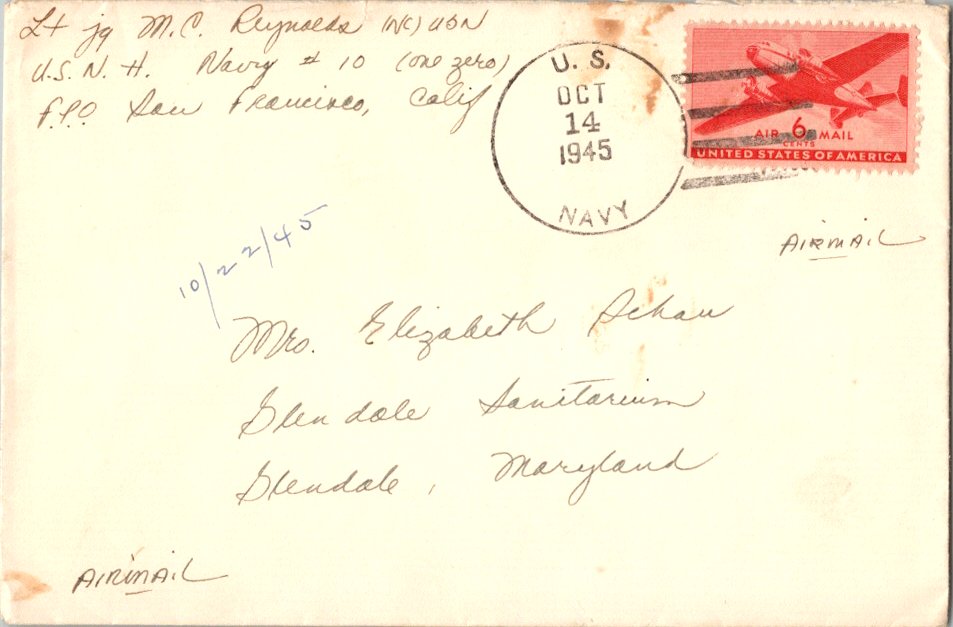 Lt jg M.C. Reynolds (NC) USN
U.S. N. H. Navy # 10 (one zero)
F.P.O San Francisco, Calif
U. S.
OCT
14
1945
NAVY
AIR 6¢ MAIL
CENTS
UNITED STATES OF AMERICA
AIRMAIL
10/22/45
Mrs. Elizabeth Schau
Glendale Sanitarium
Glendale, Maryland
AIRMAIL